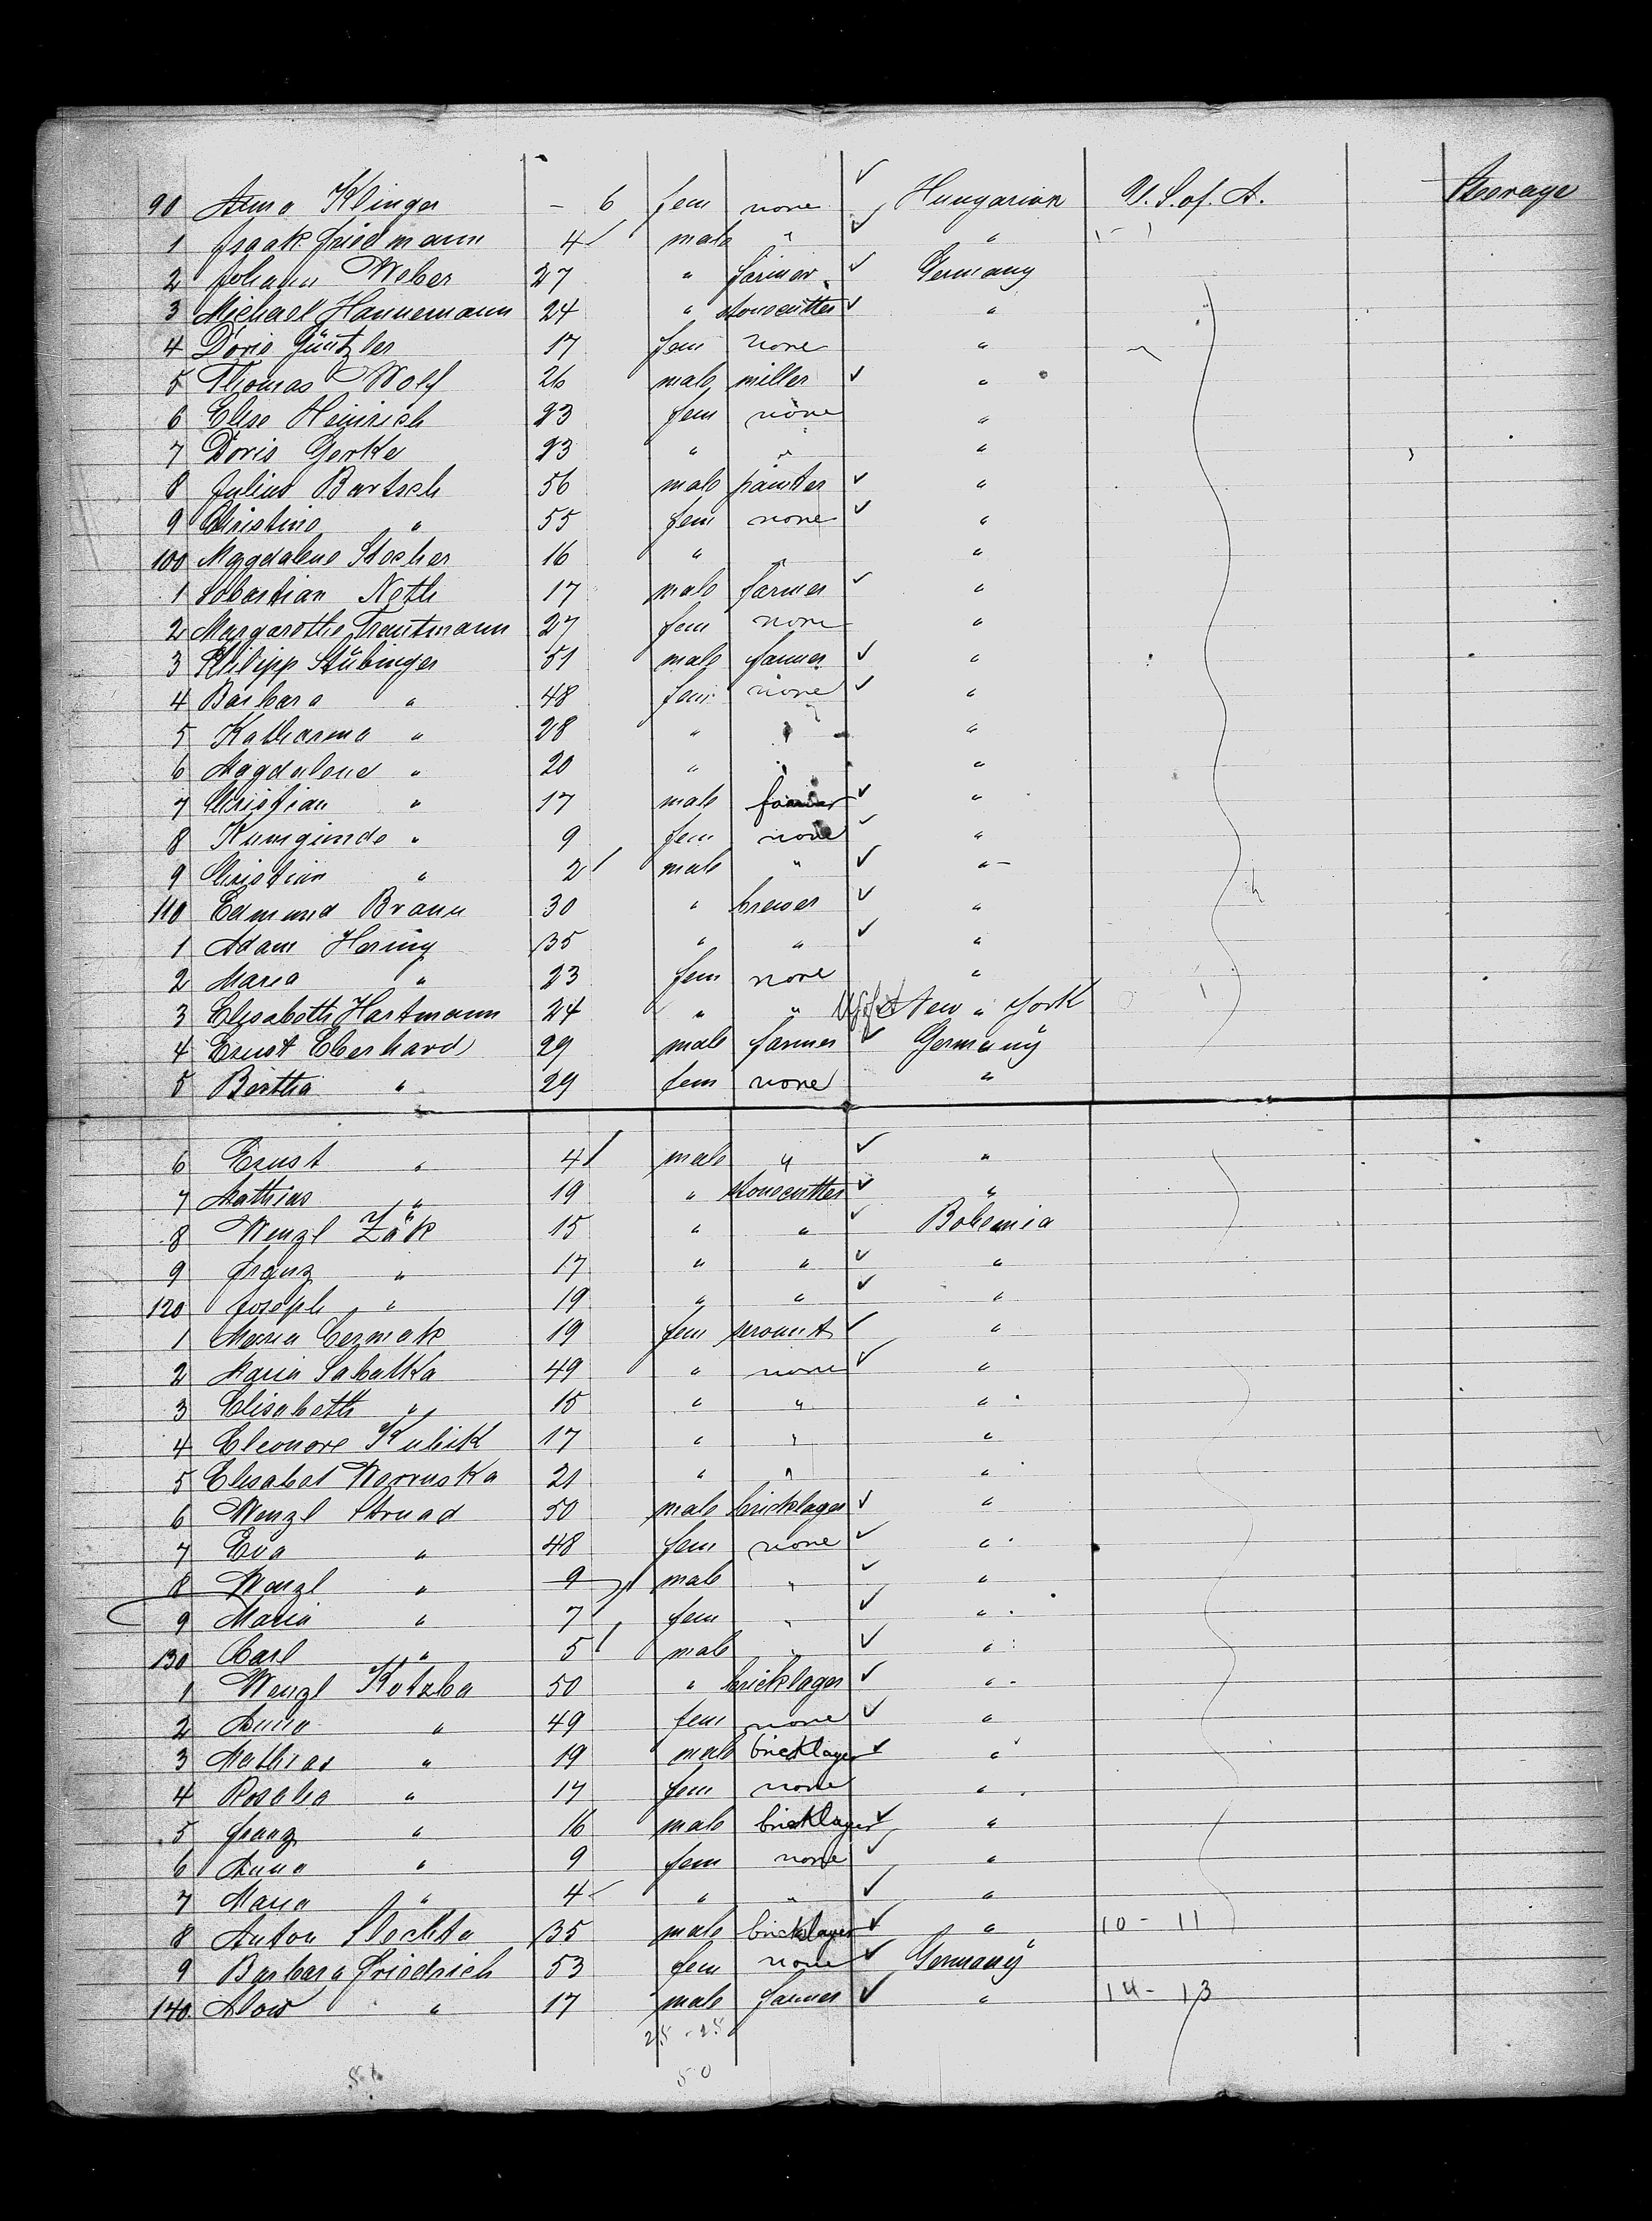 90 Anna Klinger - 6 fem none ✓ Hungarian U. S. of. A. Steerage
1 Isaak Friedmann 4 male " ✓ "
2 Johann Weber 27 " farmer ✓ Germany
3 Michael Hannemann 24 " stonecutter ✓ "
4 Doris Güntzler 17 fem none "
5 Thomas Wolf 26 male miller ✓ "
6 Elise Heinrich 23 fem none "
7 Doris Gerke 23 " " "
8 Julius Bartsch 56 male painter ✓ "
9 Christine " 55 fem none ✓ "
100 Magdalene Stecher 16 " " "
1 Sebastian Neth 17 male farmer ✓ "
2 Margarethe Trautmann 27 fem none "
3 Philipp Stübinger 51 male farmer ✓ "
4 Barbara " 48 fem none ✓ "
5 Katharina " 28 " " "
6 Magdalena " 20 " " "
7 Christian " 17 male farmer ✓ "
8 Kunigunde " 9 fem none ✓ "
9 Christian " 2 male " ✓ "
110 Edmund Braun 30 " brewer ✓ "
1 Adam Hering 35 " " ✓ "
2 Maria " 23 fem none "
3 Elisabeth Hartmann 24 " " New York
4 Ernst Eberhard 29 male farmer ✓ Germany
5 Bertha " 29 fem none "
6 Ernst " 4 male " ✓ "
7 Mathias " 19 " stonecutter ✓ "
8 Wenzl Zák 15 " " ✓ Bohemia
9 Franz " 17 " " ✓ "
120 Joseph " 19 " " ✓ "
1 Maria Cermak 19 fem servant ✓ "
2 Maria Sabatka 49 " none ✓ "
3 Elisabeth " 15 " " "
4 Eleonore Kubik 17 " " "
5 Elisabet Worruska 21 " " "
6 Wenzl Strnad 50 male bricklager ✓ "
7 Eva " 48 fem none ✓ "
8 Wenzl " 9 male " ✓ "
9 Maria " 7 fem " ✓ "
130 Carl " 5 male " ✓ "
1 Wenzl Kotzba 50 " bricklager ✓ "
2 Anna " 49 fem none ✓ "
3 Mathias " 19 male bricklayer ✓ "
4 Rosalia " 17 fem none "
5 Franz " 16 male bricklayer ✓ "
6 Anna " 9 fem none ✓ "
7 Maria " 4 " " ✓ "
8 Anton Slechta 35 male bricklayer ✓ " 10 - 11
9 Barbara Friedrich 53 fem none ✓ Germany
140. " 17 male farmer ✓ " 14 - 13
25 - 25
50